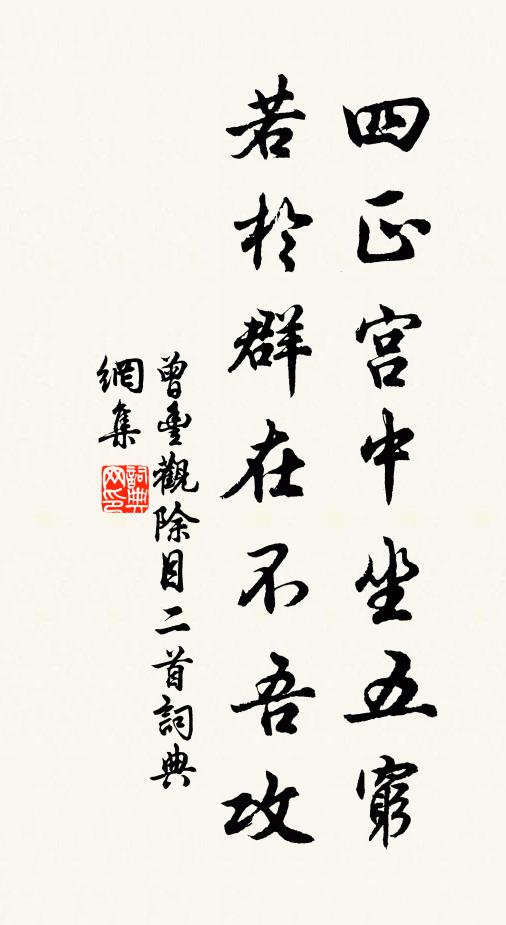 四正宮中坐五窮
若於群在不吾攻
曾豊觀除目二首詞典
網集
詞典網印